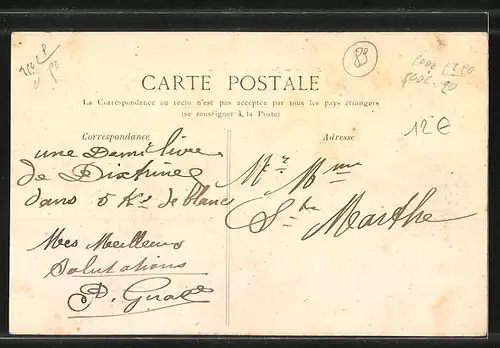 CARTE POSTALE
La Correspondance au recto n'est pas acceptée par tous les pays étrangers
(se renseigner à la Poste)
Correspondance
Adresse
12€
une Demi livre
de Dixtrine
dans 5 Ks de blanc
Mes Meilleures
Salutations
Mr Mme
Ste Marthe